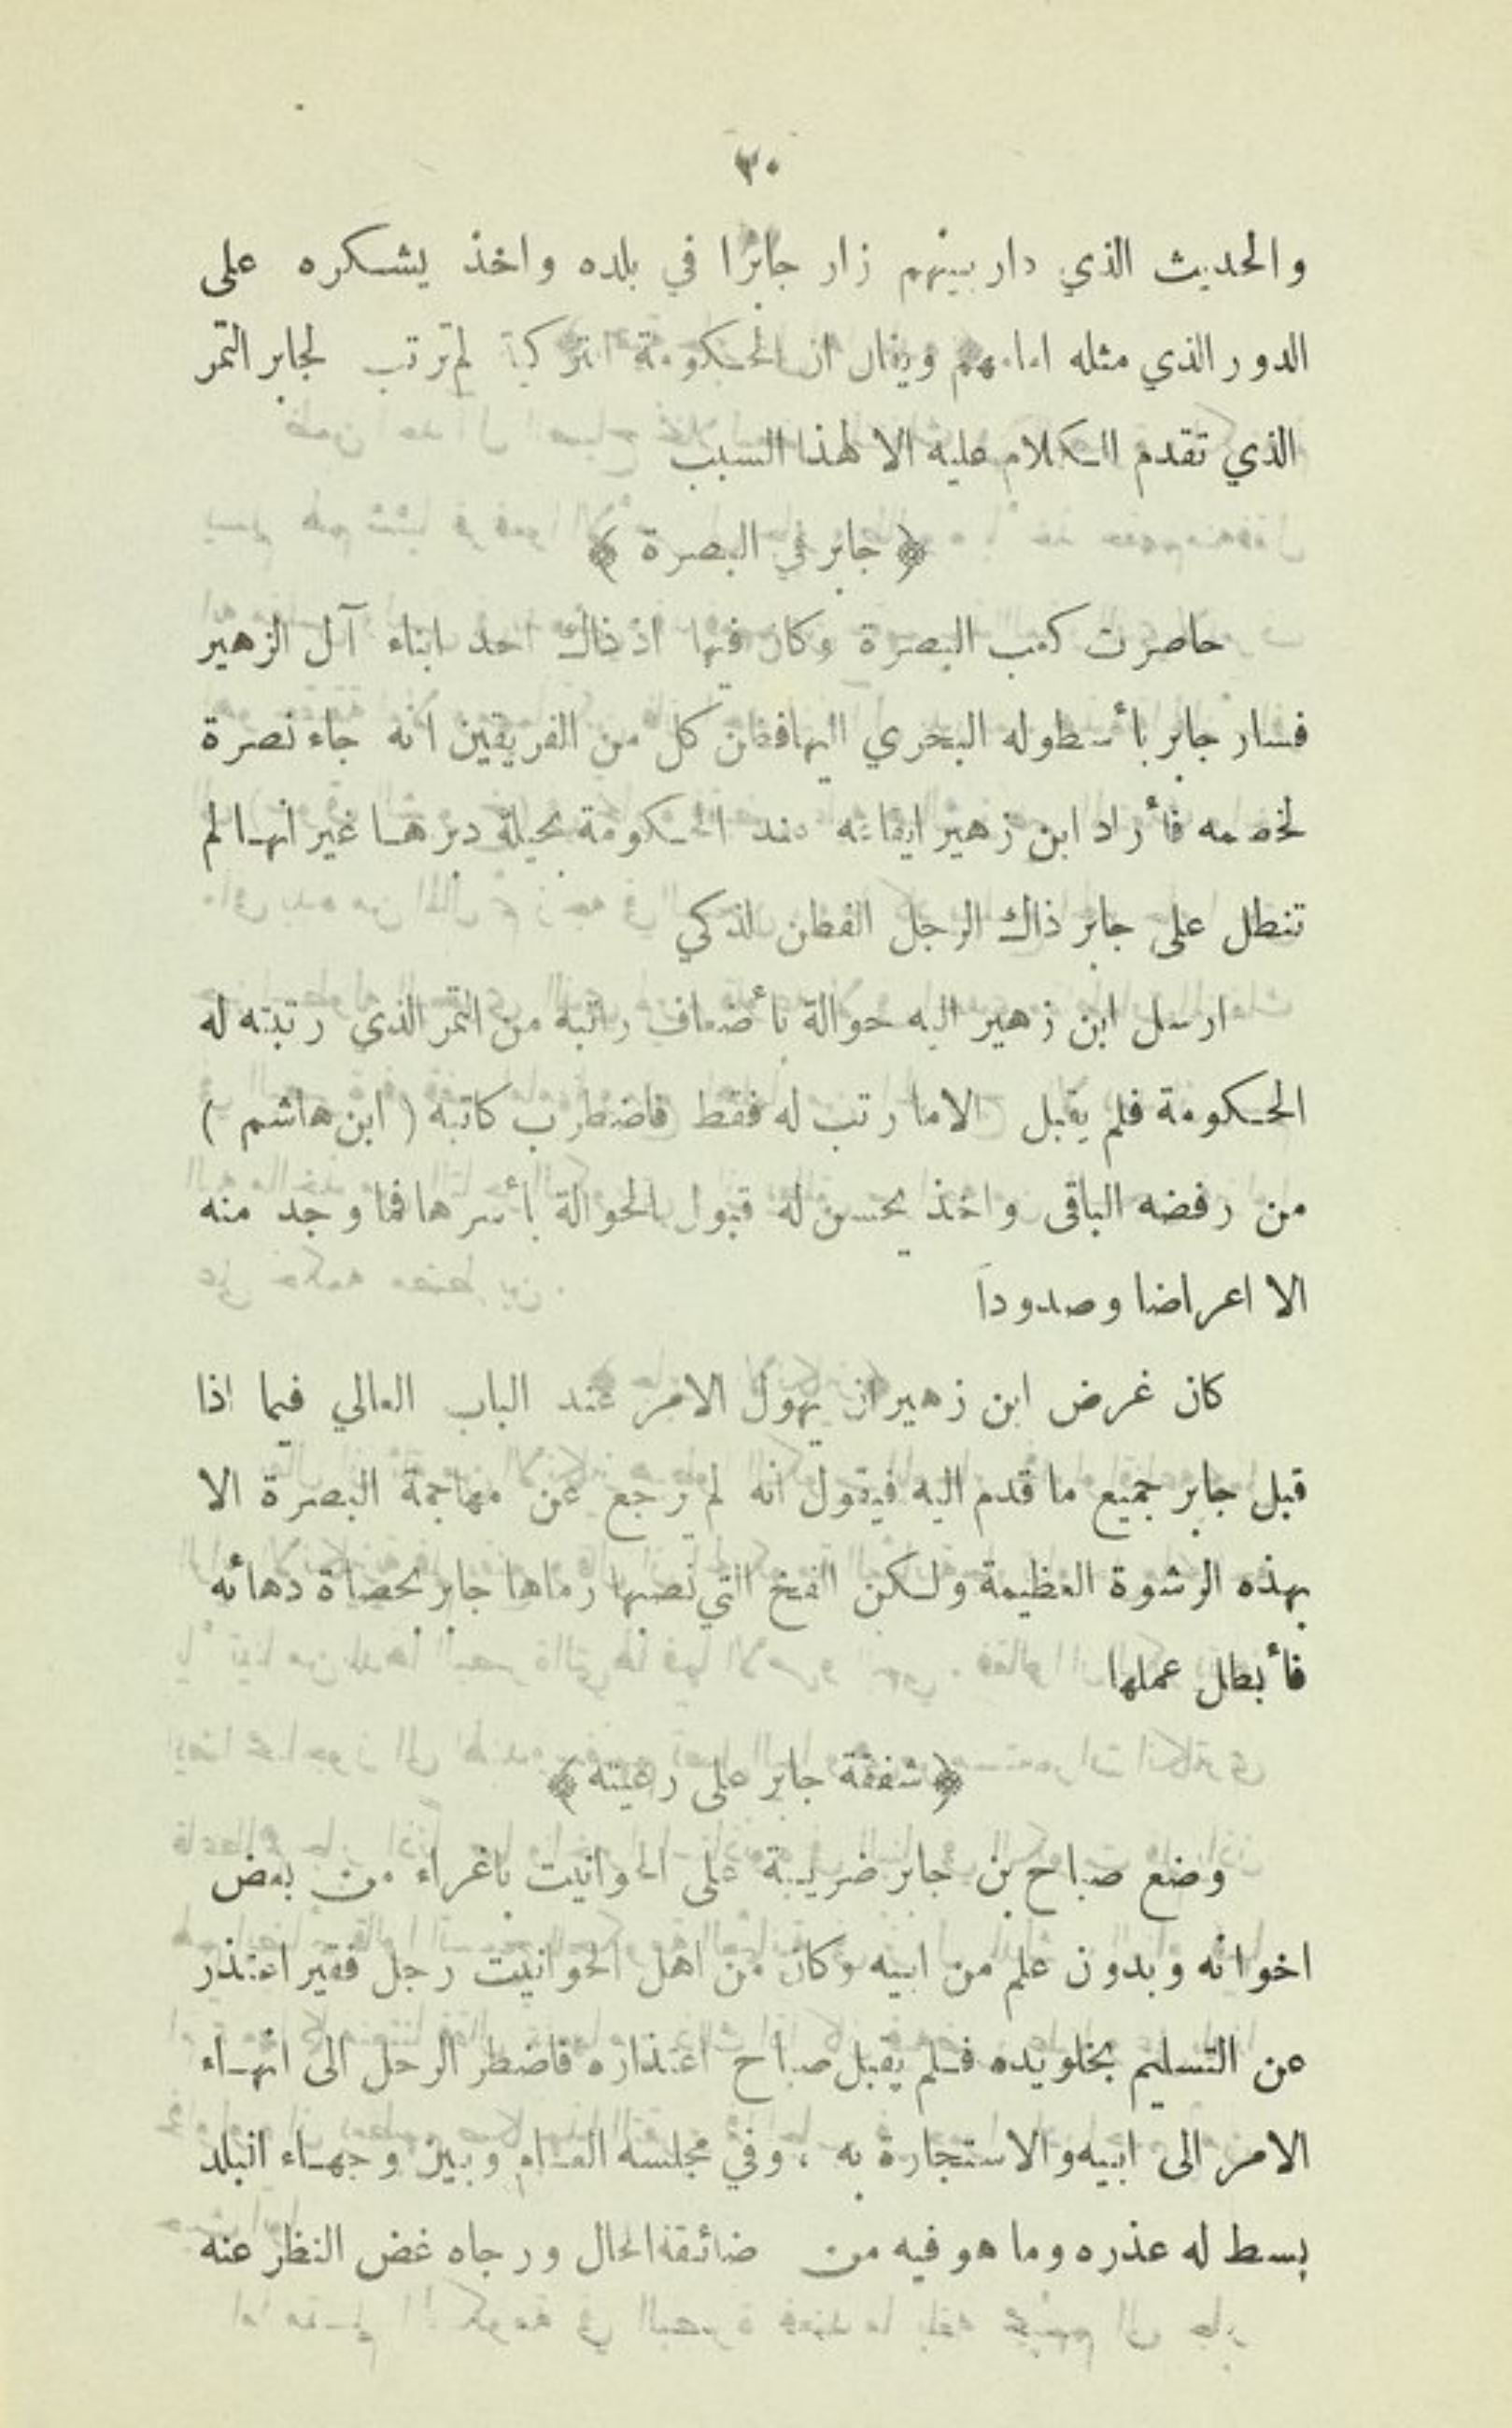 ٣٠
والحديث الذي دار بينهم زار جابرًا في بلده واخذ يشكره على
الدور الذي مثله امامهم ويقال ان الحكومة التركية لم ترتب لجابر التمر
الذي تقدم الكلام عليه الا لهذا السبب
﴿ جابر في البصرة ﴾
حاصرت كعب البصرة وكان فيها اذ ذاك احد ابناء آل الزهير
فسار جابر بأسطوله البحري اليها فظن كل من الفريقين انه جاء نصرة
لخصمه فأراد ابن زهير ايقاعه عند الحكومة بحيلة دبرها غير انها لم
تنطل على جابر ذاك الرجل الفطن الذكي
ارسل ابن زهير اليه حوالة بأضعاف راتبه من التمر الذي رتبته له
الحكومة فلم يقبل الا ما رتب له فقط فاضطرب كاتبه ( ابن هاشم )
من رفضه الباقى واخذ يحسن له قبول الحوالة بأسرها فما وجد منه
الا اعراضا وصدوداً
كان غرض ابن زهير ان يهول الامر عند الباب العالي فيما اذا
قبل جابر جميع ما قدم اليه فيقول انه لم يرجع عن مهاجمة البصرة الا
بهذه الرشوة العظيمة ولكن الفخ التي نصبها رماها جابر بحصاة دهائه
فأبطل عملها
﴿ شفقة جابر على رعيته ﴾
وضع صباح بن جابر ضريبة على الحوانيت باغراء من بعض
اخوانه وبدون علم من ابيه وكان من اهل الحوانيت رجل فقير اعتذر
عن التسليم بخلو يده فلم يقبل صباح اعتذاره فاضطر الرجل الى انهاء
الامر الى ابيه والاستجارة به ، وفي مجلسه العام وبين وجهاء البلد
بسط له عذره وما هو فيه من ضائقة الحال ورجاه غض النظر عنه